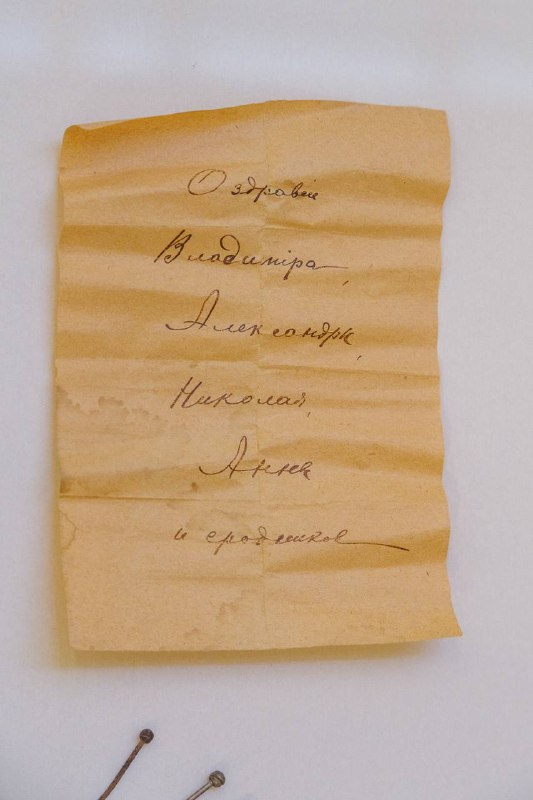 О здравіи
Владиміра,
Александры,
Николая,
Анны
и сродников